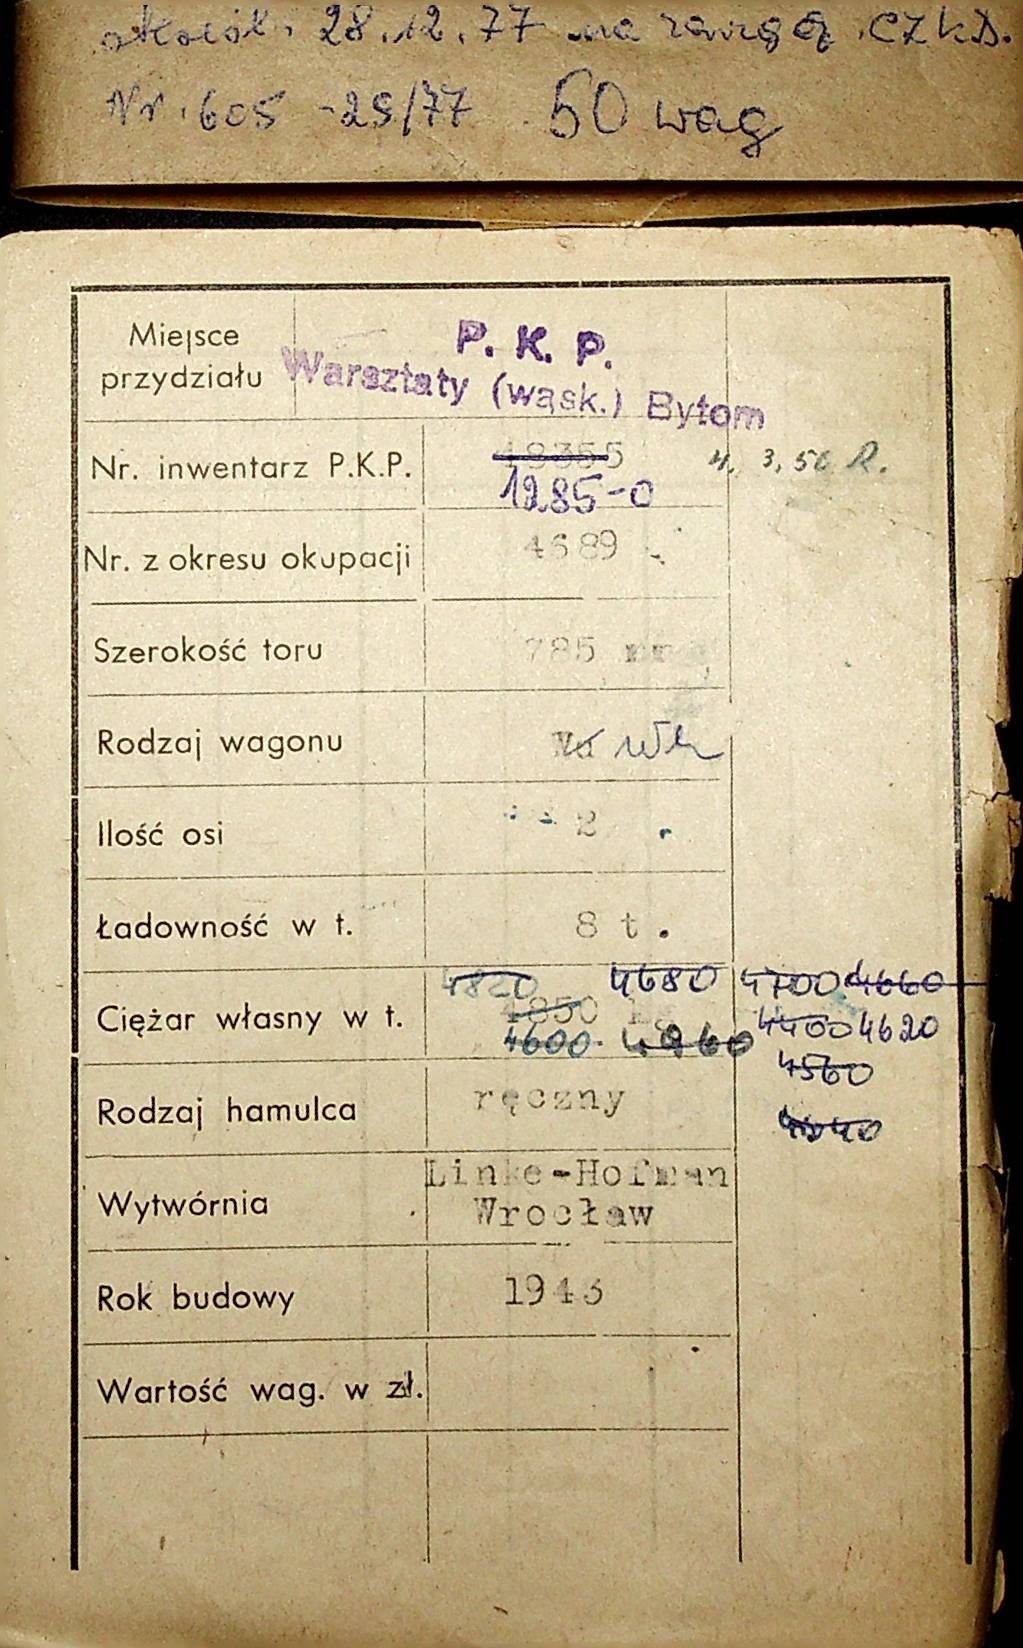 28.12.77 na
Nr. 605 -29/77 50 wag
Miejsce przydziału
P. K. P.
Warsztaty (wąsk.) Bytom
Nr. inwentarz P.K.P. 4. 3, 56 R.
1285-0
Nr. z okresu okupacji 4689
Szerokość toru 785 mm
Rodzaj wagonu
Ilość osi 2
Ładowność w t. 8 t.
4820 4680 4700 4660
Ciężar własny w t. 4850 kg 4400 4620
4600 4560
Rodzaj hamulca ręczny
Wytwórnia Linke-Hofman
Wrocław
Rok budowy 1943
Wartość wag. w zł.